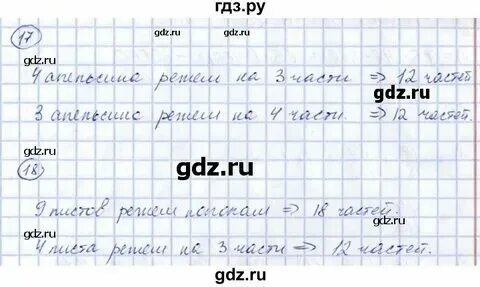 гдз.ру
17
4 апельсина режем на 3 части => 12 частей
gdz.ru
3 апельсина режем на 4 части. => 12 частей.
gdz.ru
18
gdz.ru
9 листов режем пополам => 18 частей.
gdz.ru
4 листа режем на 3 части => 12 частей.
gdz.ru
gdz.ru